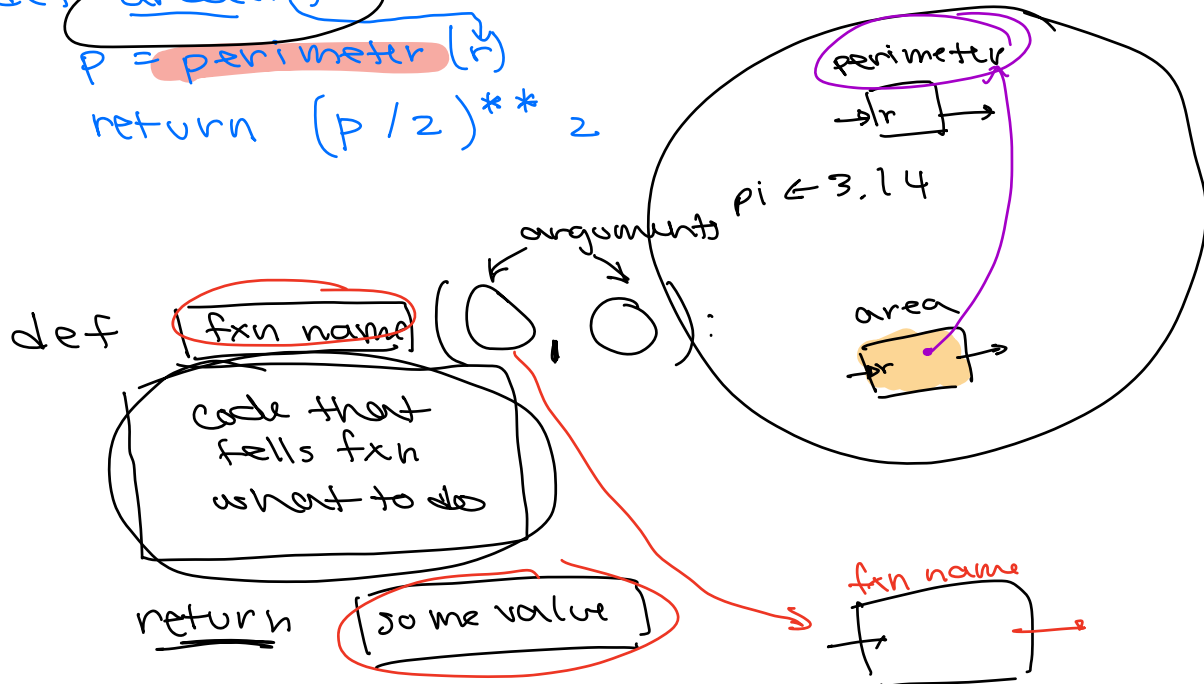 p = perimeter (r)
return (p / 2) ** 2
perimeter
r
pi ← 3.14
arguments
def fxn name ( , ) :
area
r
code that
tells fxn
what to do
return some value
fxn name